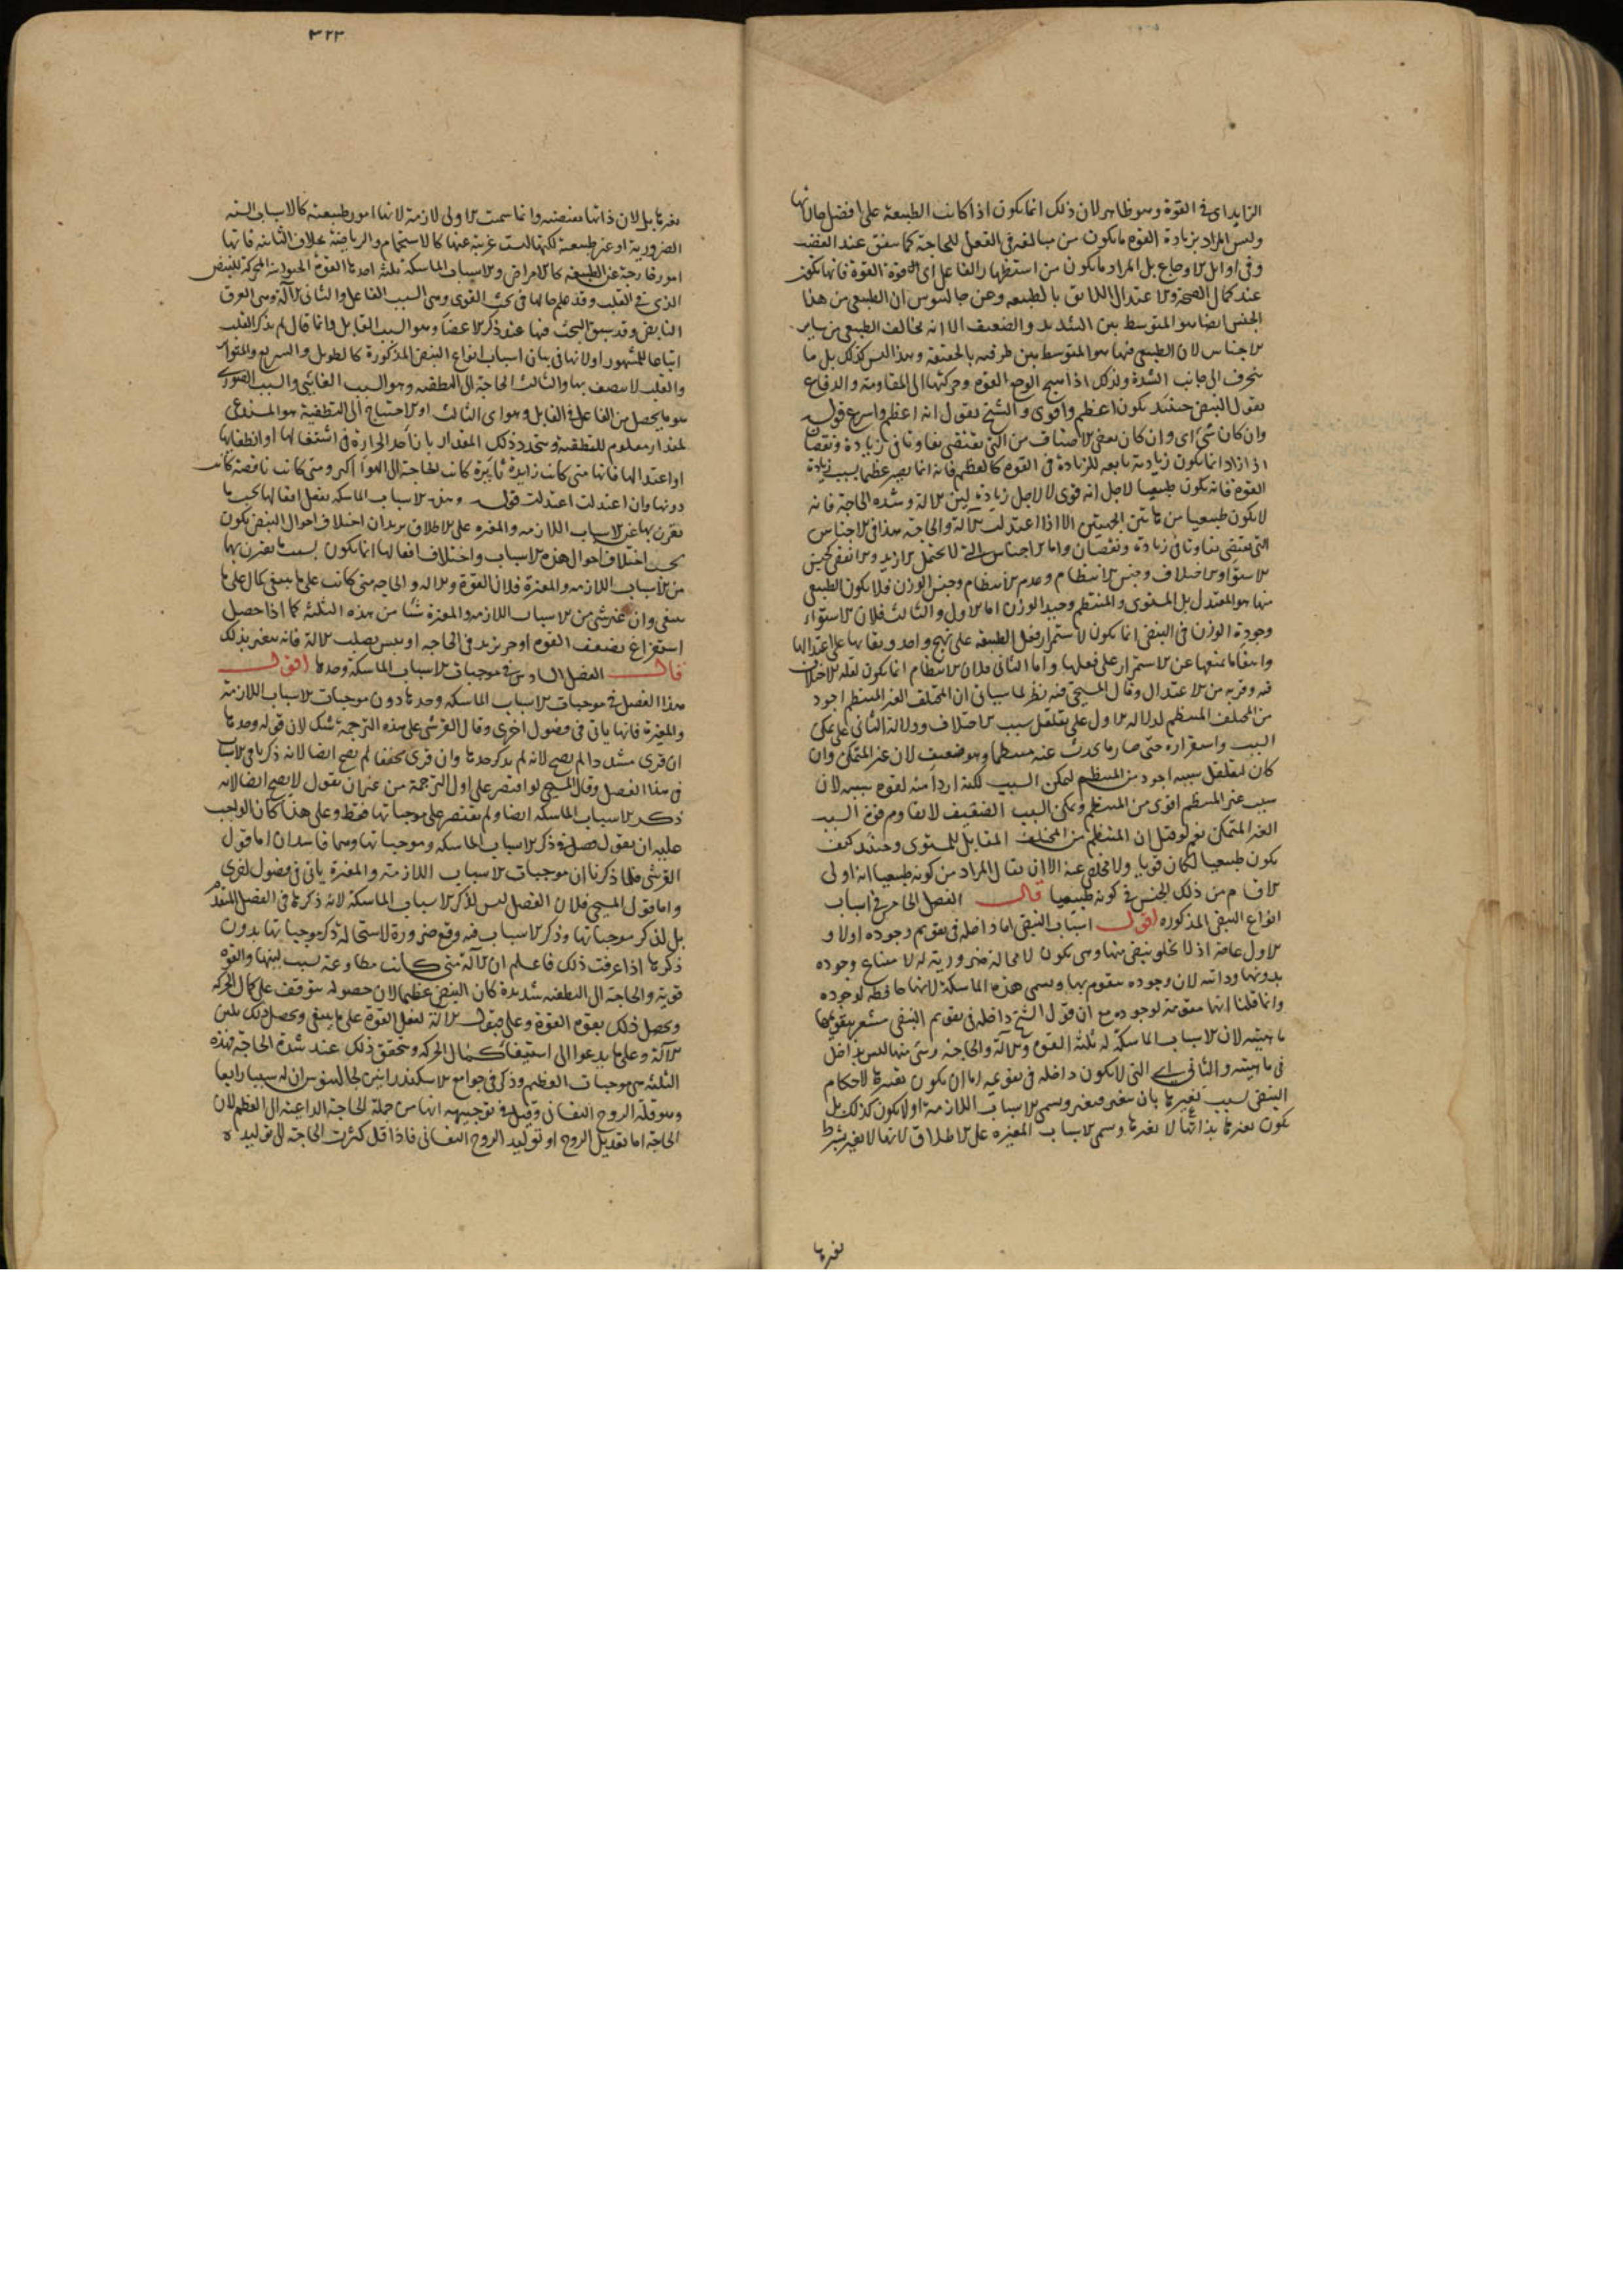 الزايد اى فى القوة وهو ظاهر لان ذلك انما يكون اذا كانت الطبيعة على افضل حالاتها
وليس المراد بزيادة القوة ما يكون من مبالغة فى الفعل للحاجة كما يتفق عند الغضب
وفى اوايل الاوجاع بل المراد ما يكون من استظهار الفاعل اى قوة القوة فانها تكون
عند كمال الصحة والاعتدال اللايق بالطبيعة وعن جالينوس ان الطبيعى من هذا
الجنس ايضا هو المتوسط بين الشديد والضعيف الا انه يخالف الطبيعى من ساير
الاجناس لان الطبيعى فيها هو المتوسط بين طرفيه بالحقيقة وهذا ليس كذلك بل ما
ينحرف الى جانب الشدة ولذلك اذا هيج الوجع القوة وحركتها الى المقاومة والدفاع
يقول النبض حينئذ يكون اعظم واقوى والشيخ يقول انه اعظم واسرع قوله
وان كان شئ اى وان كان بعض الاصناف من التى تقتضى تفاوتا فى زيادة ونقصان
اذا زاد انما يكون زيادته تابعة للزيادة فى القوة كالعظم فانه انما يصير عظيما بسبب زيادة
القوة فانه يكون طبيعيا لاجل انه قوى لا لاجل زيادة لين الالة وشدة الحاجة فانه
لا يكون طبيعيا من هاتين الجهتين الا اذا اعتدلت الآلة والحاجة هذا فى الاجناس
التى تقتضى تفاوتا فى زيادة ونقصان واما الاجناس التى لا تحتمل الازيد والانقص كجنس
الاستواء والاختلاف وجنس الانتظام وعدم الانتظام وجنس الوزن فلا يكون الطبيعى
منها هو المعتدل بل المستوى والمنتظم وجيد الوزن اما الاول والثالث فلان الاستواء
وجودة الوزن فى النبض انما يكون لاستمرار فعل الطبيعة على نهج واحد وبقايها على اعتدالها
وانتفاء ما يمنعها عن الاستمرار على فعلها واما الثانى فلان الانتظام انما يكون لقلة الاختلاف
فيه وقربه من الاعتدال وقال المسيحى فيه نظر لما سياتى ان المختلف الغير المنتظم اجود
من المختلف المنتظم لدلالة الاول على تقلقل سبب الاختلاف ودلالة الثانى على تمكن
السبب واستقراره حتى صار ما يحدث عنه منتظما وهو ضعيف لان غير المتمكن وان
كان لتقلقل سببه اجود من المنتظم لتمكن السبب لكنه اردأ منه لقوة سببه لان
سبب غير المنتظم اقوى من المنتظم وتمكن السبب الضعيف لا يقاوم قوة السبب
الغير المتمكن نعم لو قيل ان المنتظم من المختلف المقابل للمستوى وحينئذ كيف
يكون طبيعيا لكان قويا ولا مخلص عنه الا ان يقال المراد من كونه طبيعيا انه اولى
الاقسام من ذلك الجنس فى كونه طبيعيا قال الفصل الخامس فى اسباب
انواع النبض المذكورة اقول اسباب النبض اما داخلة فى تقويم وجوده اولا و
الاول عامة اذ لا يخلو نبض منها وهى تكون لا محالة ضرورية له لامتناع وجوده
بدونها ودائمة لان وجوده متقوم بها ويسمى هذه الماسكة لانها حافظة لوجوده
وانما قلنا انها مقومة لوجوده مع ان قول الشيخ داخلة فى تقويم النبض مشعر بتقويمها
ماهيته لان الاسباب الماسكة له ثلثة القوة والآلة والحاجة وشئ منها ليس بداخل
فى ماهيته والثانى اى التى لا تكون داخلة فى تقويمه اما ان يكون تغيرها لاحكام
النبض بسبب تغيرها بان تتغير فيتغير ويسمى الاسباب اللازمة او لا يكون كذلك بل
يكون تغيرها بذاتها لا تغيرها ويسمى الاسباب المغيرة على الاطلاق لانها لا تغير بشرط
تغيرها
٣٢٣
تغيرها بل لان ذاتها تقتضيه وانما سميت الاولى لازمة لانها امور طبيعية كالاسباب الستة
الضرورية او غير طبيعية لكنها ليست غريبة عنها كالاستحمام والرياضة بخلاف الثانية فانها
امور خارجة عن الطبيعة كالامراض والاسباب الماسكة ثلثة احدها القوة الحيوانية المحركة للنبض
الذى فى القلب وقد علم حالها فى بحث القوى وهى السبب الفاعل والثانى الآلة وهى العرق
النابض وقد سبق البحث فيها عند ذكر الاعضاء وهو السبب القابل وانما قال لم يذكر القلب
اتباعا للمشهور او لانها فى بيان اسباب انواع النبض المذكورة كالطويل والسريع والمتواتر
والقلب لا يتصف بها والثالث الحاجة الى التطفية وهو السبب الغائى والسبب الصورى
هو ما يحصل من الفاعل فى القابل وهو اى الثالث او الاحتياج الى التطفية هو المستدعى
لمقدار معلوم للتطفية ويتحدد ذلك المقدار بازاء حد الحرارة فى اشتعالها او انطفايها
او اعتدالها فانها متى كانت زايدة ثايرة كانت الحاجة الى الهواء اكثر ومتى كانت ناقصة كانت
دونها وان اعتدلت اعتدلت قوله وهذه الاسباب الماسكة يفعل افعالها بحسب ما
تقترن بها من الاسباب اللازمة والمغيرة على الاطلاق يريد ان اختلاف احوال النبض يكون
بحسب اختلاف احوال هذه الاسباب واختلاف افعالها انما يكون بسبب ما يقترن بها
من الاسباب اللازمة والمغيرة فلان القوة والالة والحاجة متى كانت على ما ينبغى كان على ما
ينبغى وان غير شئ من الاسباب اللازمة والمغيرة شيئا من هذه الثلثة كما اذا حصل
استفراغ يضعف القوة او حر يزيد فى الحاجة او يبس يصلب الالة فانه يتغير بذلك
قال الفصل السادس فى موجبات الاسباب الماسكة وحدها اقول
هذا الفصل فى موجبات الاسباب الماسكة وحدها دون موجبات الاسباب اللازمة
والمغيرة فانها ياتى فى فصول اخرى وقال القرشى على هذه الترجمة شك لان قوله وحدها
ان قرئ مشددا لم يصح لانه لم يذكر حدها وان قرئ مخففا لم يصح ايضا لانه ذكر باقى الاسباب
فى هذا الفصل وقال المسيحى لو اقتصر على اول الترجمة من غير ان يقول لا يصح ايضا لانه
ذكر الاسباب الماسكة ايضا ولم يقتصر على موجباتها فقط وعلى هذا كان الواجب
عليه ان يقول فصل فى ذكر الاسباب الماسكة وموجباتها وهما فاسدان اما قول
القرشى فلما ذكرنا ان موجبات الاسباب اللازمة والمغيرة ياتى فى فصول اخرى
واما قول المسيحى فلان الفصل ليس لذكر الاسباب الماسكة لانه ذكرها فى الفصل المتقدم
بل لذكر موجباتها وذكر الاسباب فيه وقع ضرورة لاستحالة ذكر موجباتها بدون
ذكرها اذا عرفت ذلك فاعلم ان الآلة متى كانت مطاوعة بسبب لينها والقوة
قوية والحاجة الى التطفية شديدة كان النبض عظيما لان حصوله يتوقف على كمال الحركة
ويحصل ذلك بقوة القوة وعلى قبول الآلة لفعل القوة على ما ينبغى ويحصل ذلك بلين
الآلة وعلى ما يدعوا الى استيفاء كمال الحركة ويتحقق ذلك عند شدة الحاجة فهذه
الثلثة هى موجبات العظيم وذكر فى جوامع الاسكندرانيين لجالينوس ان له سببا رابعا
وهو قلة الروح النفسانى وقيل فى توجيهه انها من جملة الحاجة الداعية الى العظم لان
الحاجة اما تعديل الروح او توليد الروح النفسانى فاذا قل كثرت الحاجة الى توليده